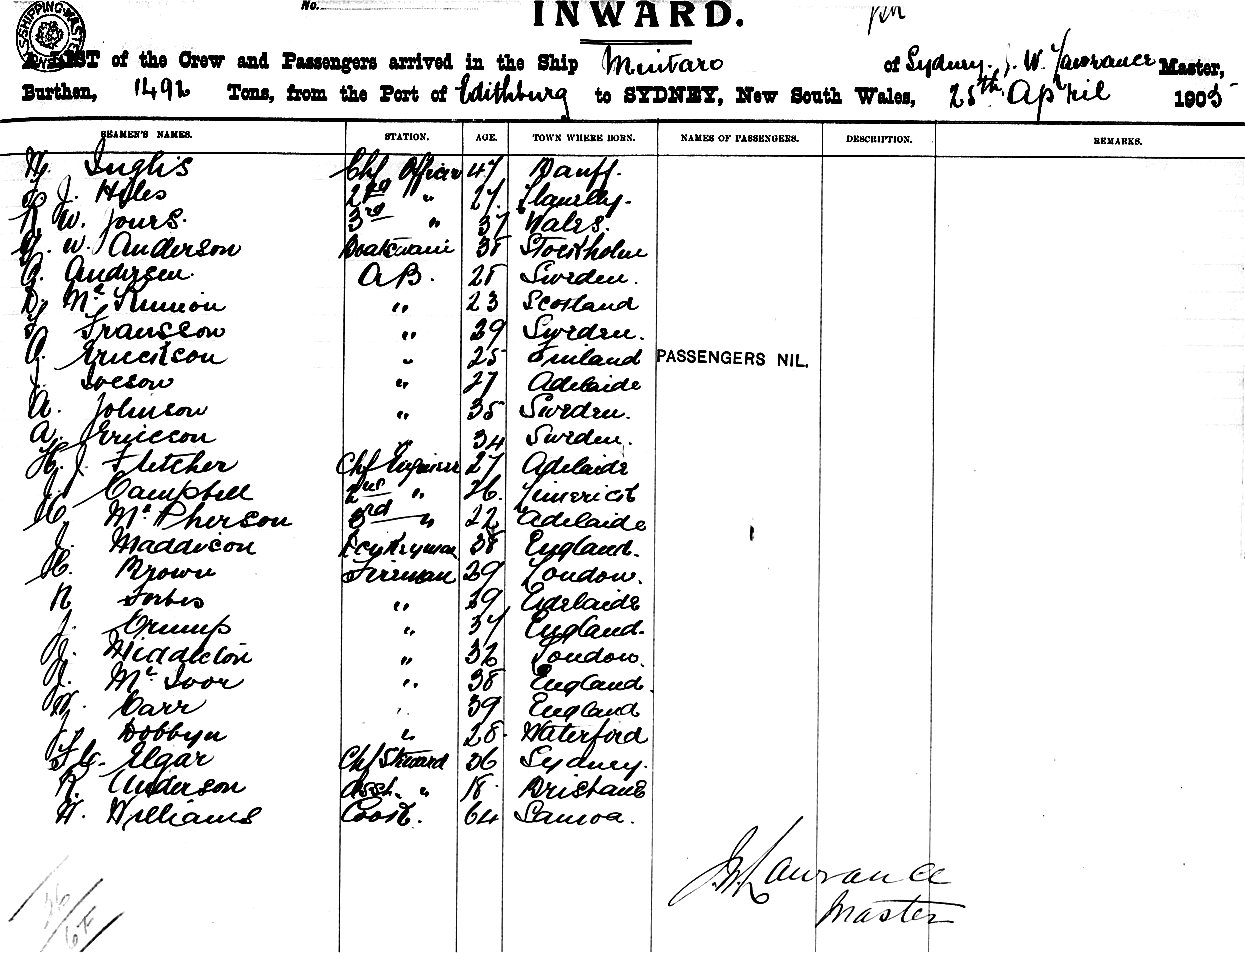 No.
INWARD.
A LIST of the Crew and Passengers arrived in the Ship Mintaro of Sydney. J. W. Lawrance Master,
Burthen, 1492 Tons, from the Port of Edithburg to SYDNEY, New South Wales, 25th April 1905
SEAMEN'S NAMES. STATION. AGE. TOWN WHERE BORN. NAMES OF PASSENGERS. DESCRIPTION. REMARKS.
Inglis Chf Officer 47 Banff.
J. Hiles 2nd " 27. Llanelly.
W. Jours. 3rd " 37 Wales.
W. Anderson Boatswain 38 Stockholm
Andersen. A B. 28 Sweden.
Mc Kinnion " 23 Scotland
Fransson " 29 Sweden.
Erickson " 25 Finland PASSENGERS NIL.
J. Ioeson " 27 Adelaide
A. Johnson " 35 Sweden.
A. Ericcon " 34 Sweden.
H. J. Fletcher Chf Engineer 27 Adelaide
J. Campbell 2nd " 26. Limerick
H. Mc Pherson 3rd " 22 Adelaide
J. Maddison Donkeyman 38 England.
H. Brown Fireman 29 London.
R Forbes " 29 Adelaide
J. Crump " 37 England.
J. Middleton " 32 London.
J. Mc Ivor " 38 England.
Carr " 39 England
Dobbyn " 28. Waterford
F. C. Elgar Chf Steward 36 Sydney.
R. Anderson Asst. " 18. Brisbane
H. Williams Cook. 64 Samoa.
J. W. Lawrance
Master